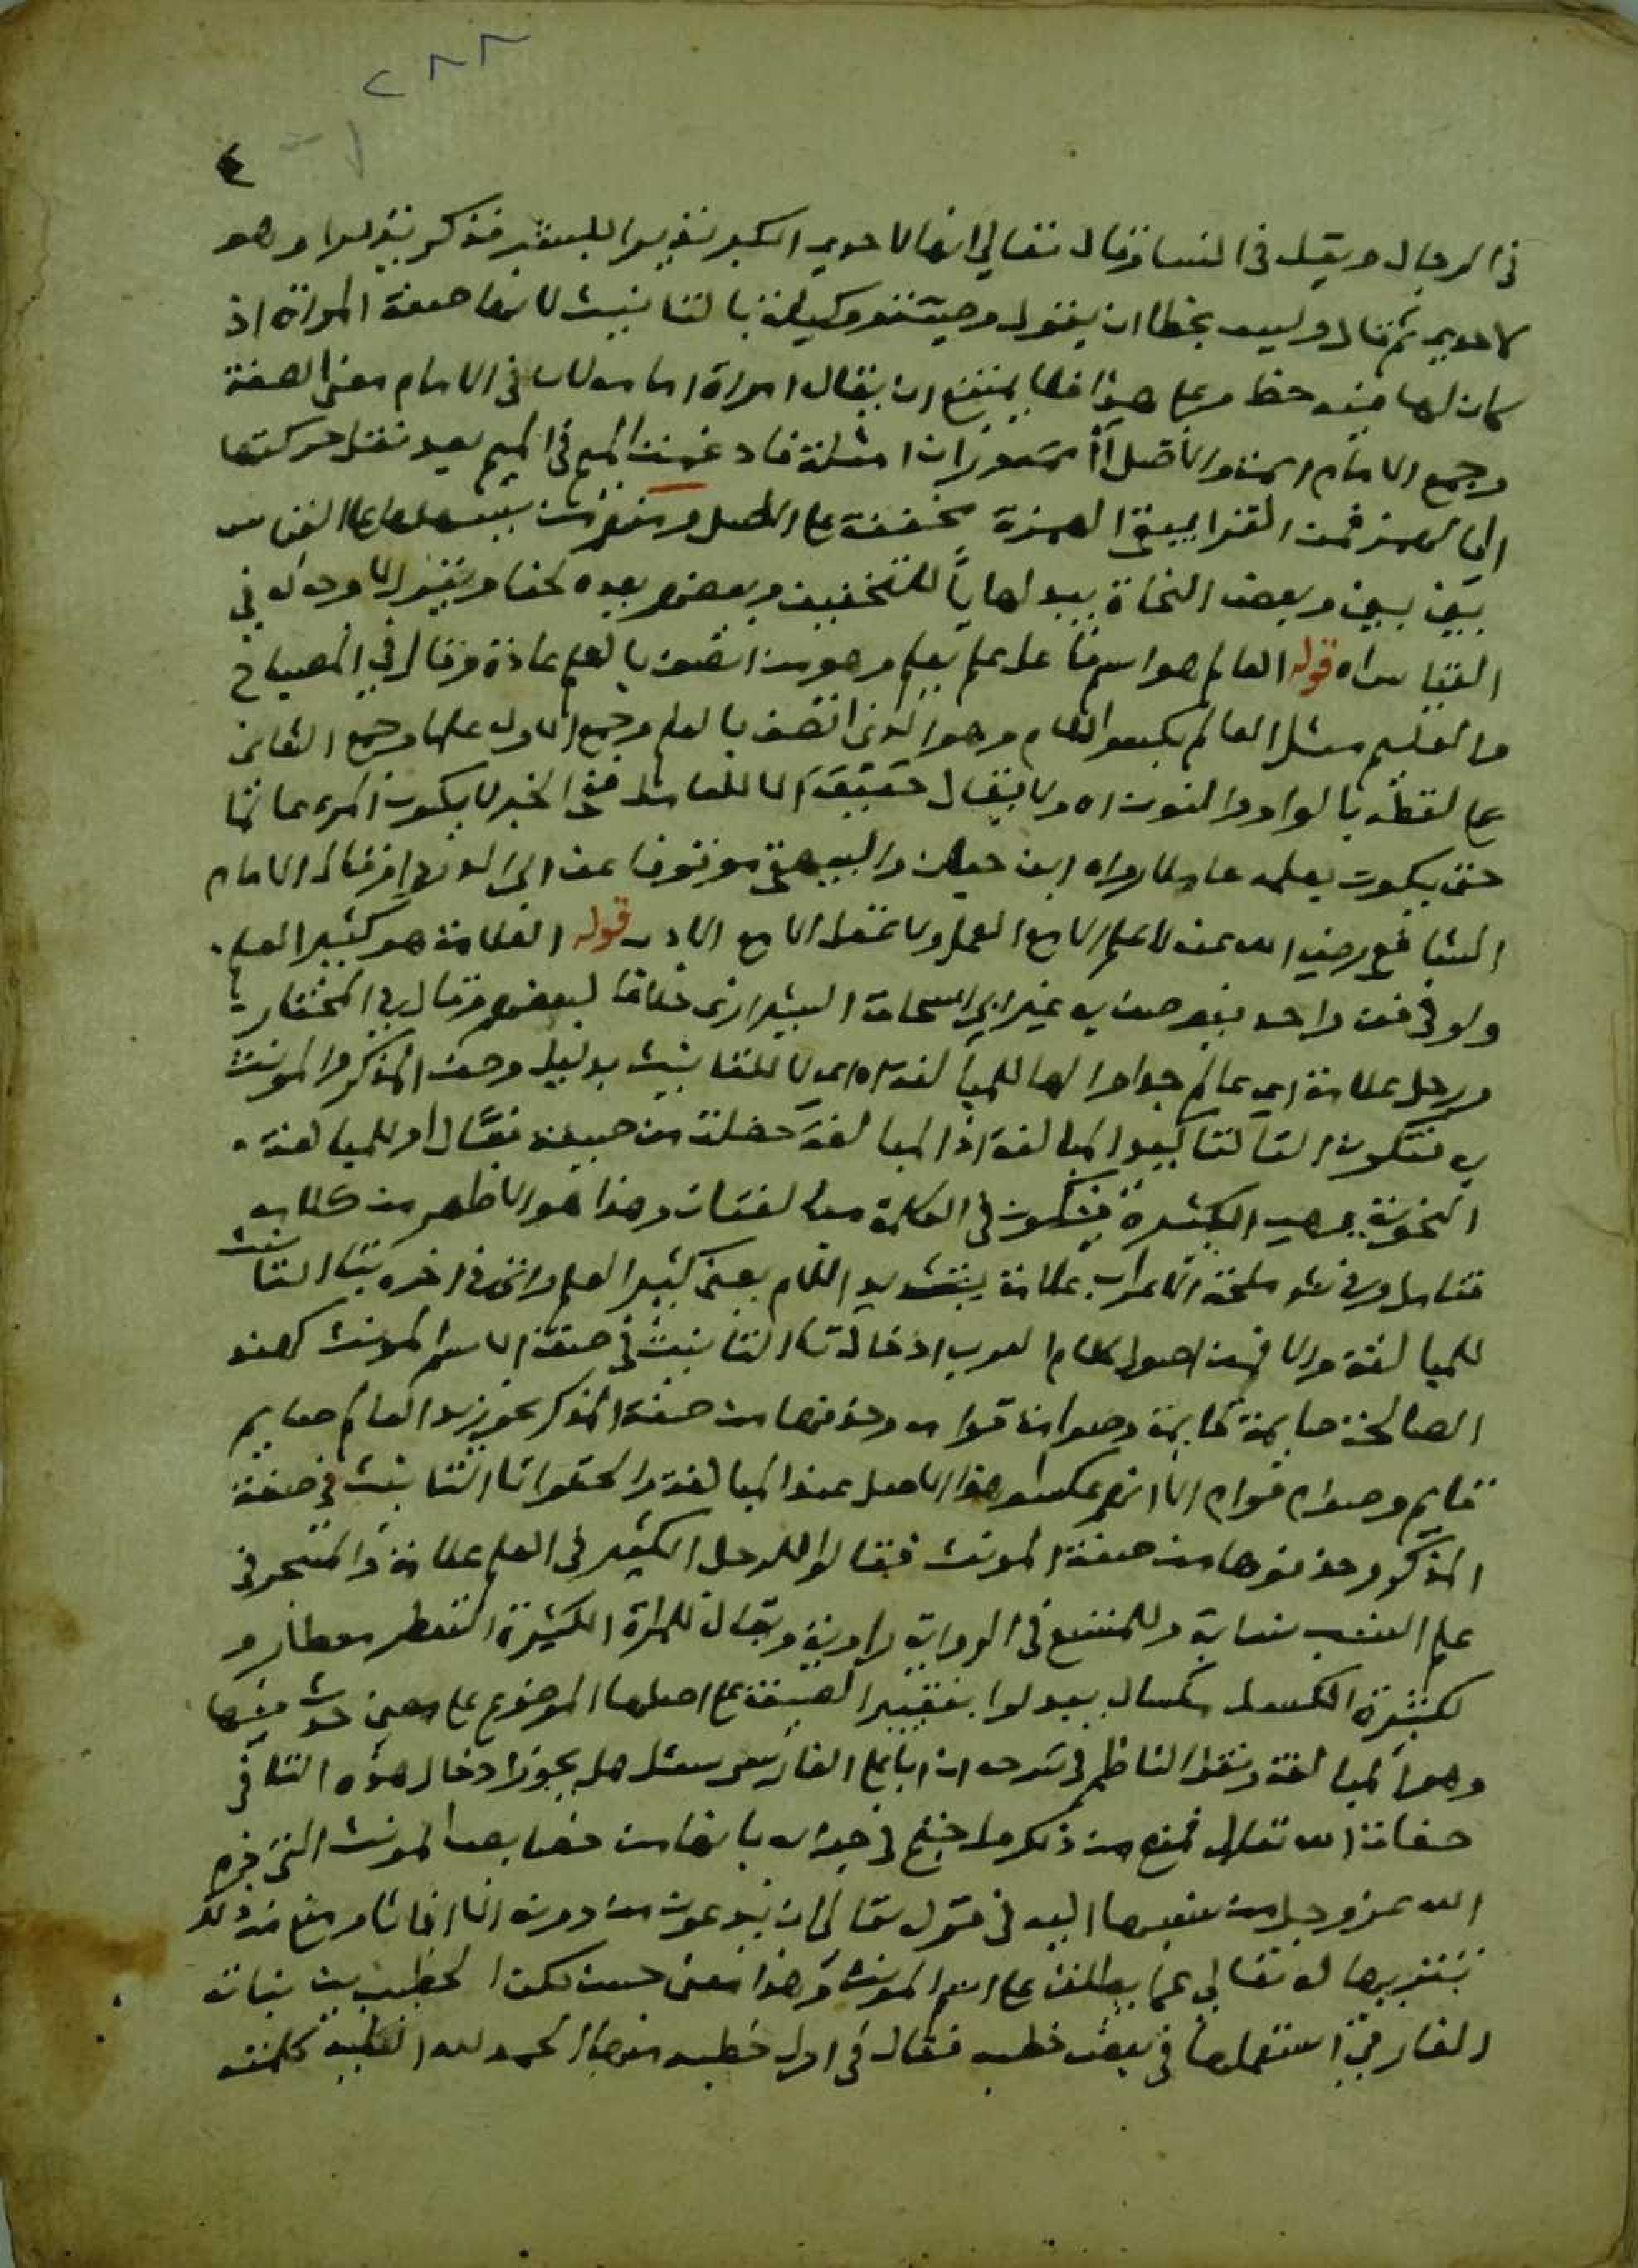 ٢٨٨
٤
في الرجال ويقل في النساء وقال تعالى انها لاحدى الكبر نذيرا للبشر فذكر نذيرا وهو
لاحدى ثم قال وليس بخطا ان يقول وصية ووكيلة بالتانيث لانها صفة المراة اذ
كان لها فيه حظ وعلى هذا فلا يمتنع ان يقال امراة امامه لان في الامام معنى الصفة
وجمع الامام ايمة والاصل أأممة وزان امثلة فادغمت الميم في الميم بعد نقل حركتها
الى الهمز فمن القرا يبقي الهمزة مخففة على الاصل ومنهم من يسهلها على القياس
بين بين وبعض النحاة يبدلها ياً للتخفيف وبعضهم يعده لحنا ويقول لا وجه له في
القياس اه قوله العالم هو اسم فاعل علم يعلم وهو من اتصف بالعلم عادة وقال في المصباح
والعليم مثل العالم بكسر اللام وهو الذي اتصف بالعلم وجمع الاول علما وجمع الثاني
على لفظه بالواو والنون اه ولا يقال حقيقة الا للعامل ففي الخبر لا يكون المرء عالما
حتى يكون بعلمه عاملا رواه ابن حبان والبيهقي موقوفا عن ابي الدرداء وقال الامام
الشافعي رضي الله عنه لا علم الا مع العمل ولا عقل الا مع الادب قوله العلامة هو كثير العلم
ولو في فن واحد فيوصف به غير ابي اسحاق الشيرازي خلافا لبعضهم وقال في المختار
ورجل علامة اي عالم جدا والها للمبالغة اه اي لا للتانيث بدليل وصف المذكر والمونث
به فتكون التا لتاكيد المبالغة اذ المبالغة حصلت من صيغة فعّال او للمبالغة
النحوية وهي الكثرة فيكون في الكلمة مبالغتان وهذا هو الاظهر من كلامه
فتامل وفي شرح ملحة الاعراب علامة بتشديد اللام بمعنى كثير العلم واتى في اخره بتا التانيث
للمبالغة والا فمن اصول كلام العرب ادخال تا التانيث في صفة الاسم المونث كهند
الصالحة صايمة قايمة وصوامة قوامه وحذفها من صفة المذكر نحو زيد العالم صايم
قايم وصوام قوام الا انهم عكسوا هذا الاصل عند المبالغة والحقوا تا التانيث في صفة
المذكر وحذفوها من صفة المونث فقالوا للرجل الكثير في العلم علامة والمتبحر في
علم النسب نسابة وللمتسع في الرواية راوية ويقال للمراة الكثيرة التعطر معطار و
لكثيرة الكسل مكسال ليدلوا بتغيير الصيغة عن اصلها الموضوع على معنى حدث فيها
وهو المبالغة ونقل الناظم في شرحه ان ابا علي الفارسي سئل هل يجوز ادخال هذه التا في
صفات الله تعالى فمنع من ذلك واحتج في جوابه بانها من خصايص المونث التي نزه
الله عز وجل من نسبها اليه في قوله تعالى ان يدعون من دونه الا اناثا ومنع من ذلك
تنزيها له تعالى عما يطلق على اسم المونث وهذا معنى حسن لكن الخطيب بن نباته
الفارقي استعملها في بعض خطبه فقال في اول خطبه منها الحمد لله الغالبة كلمته